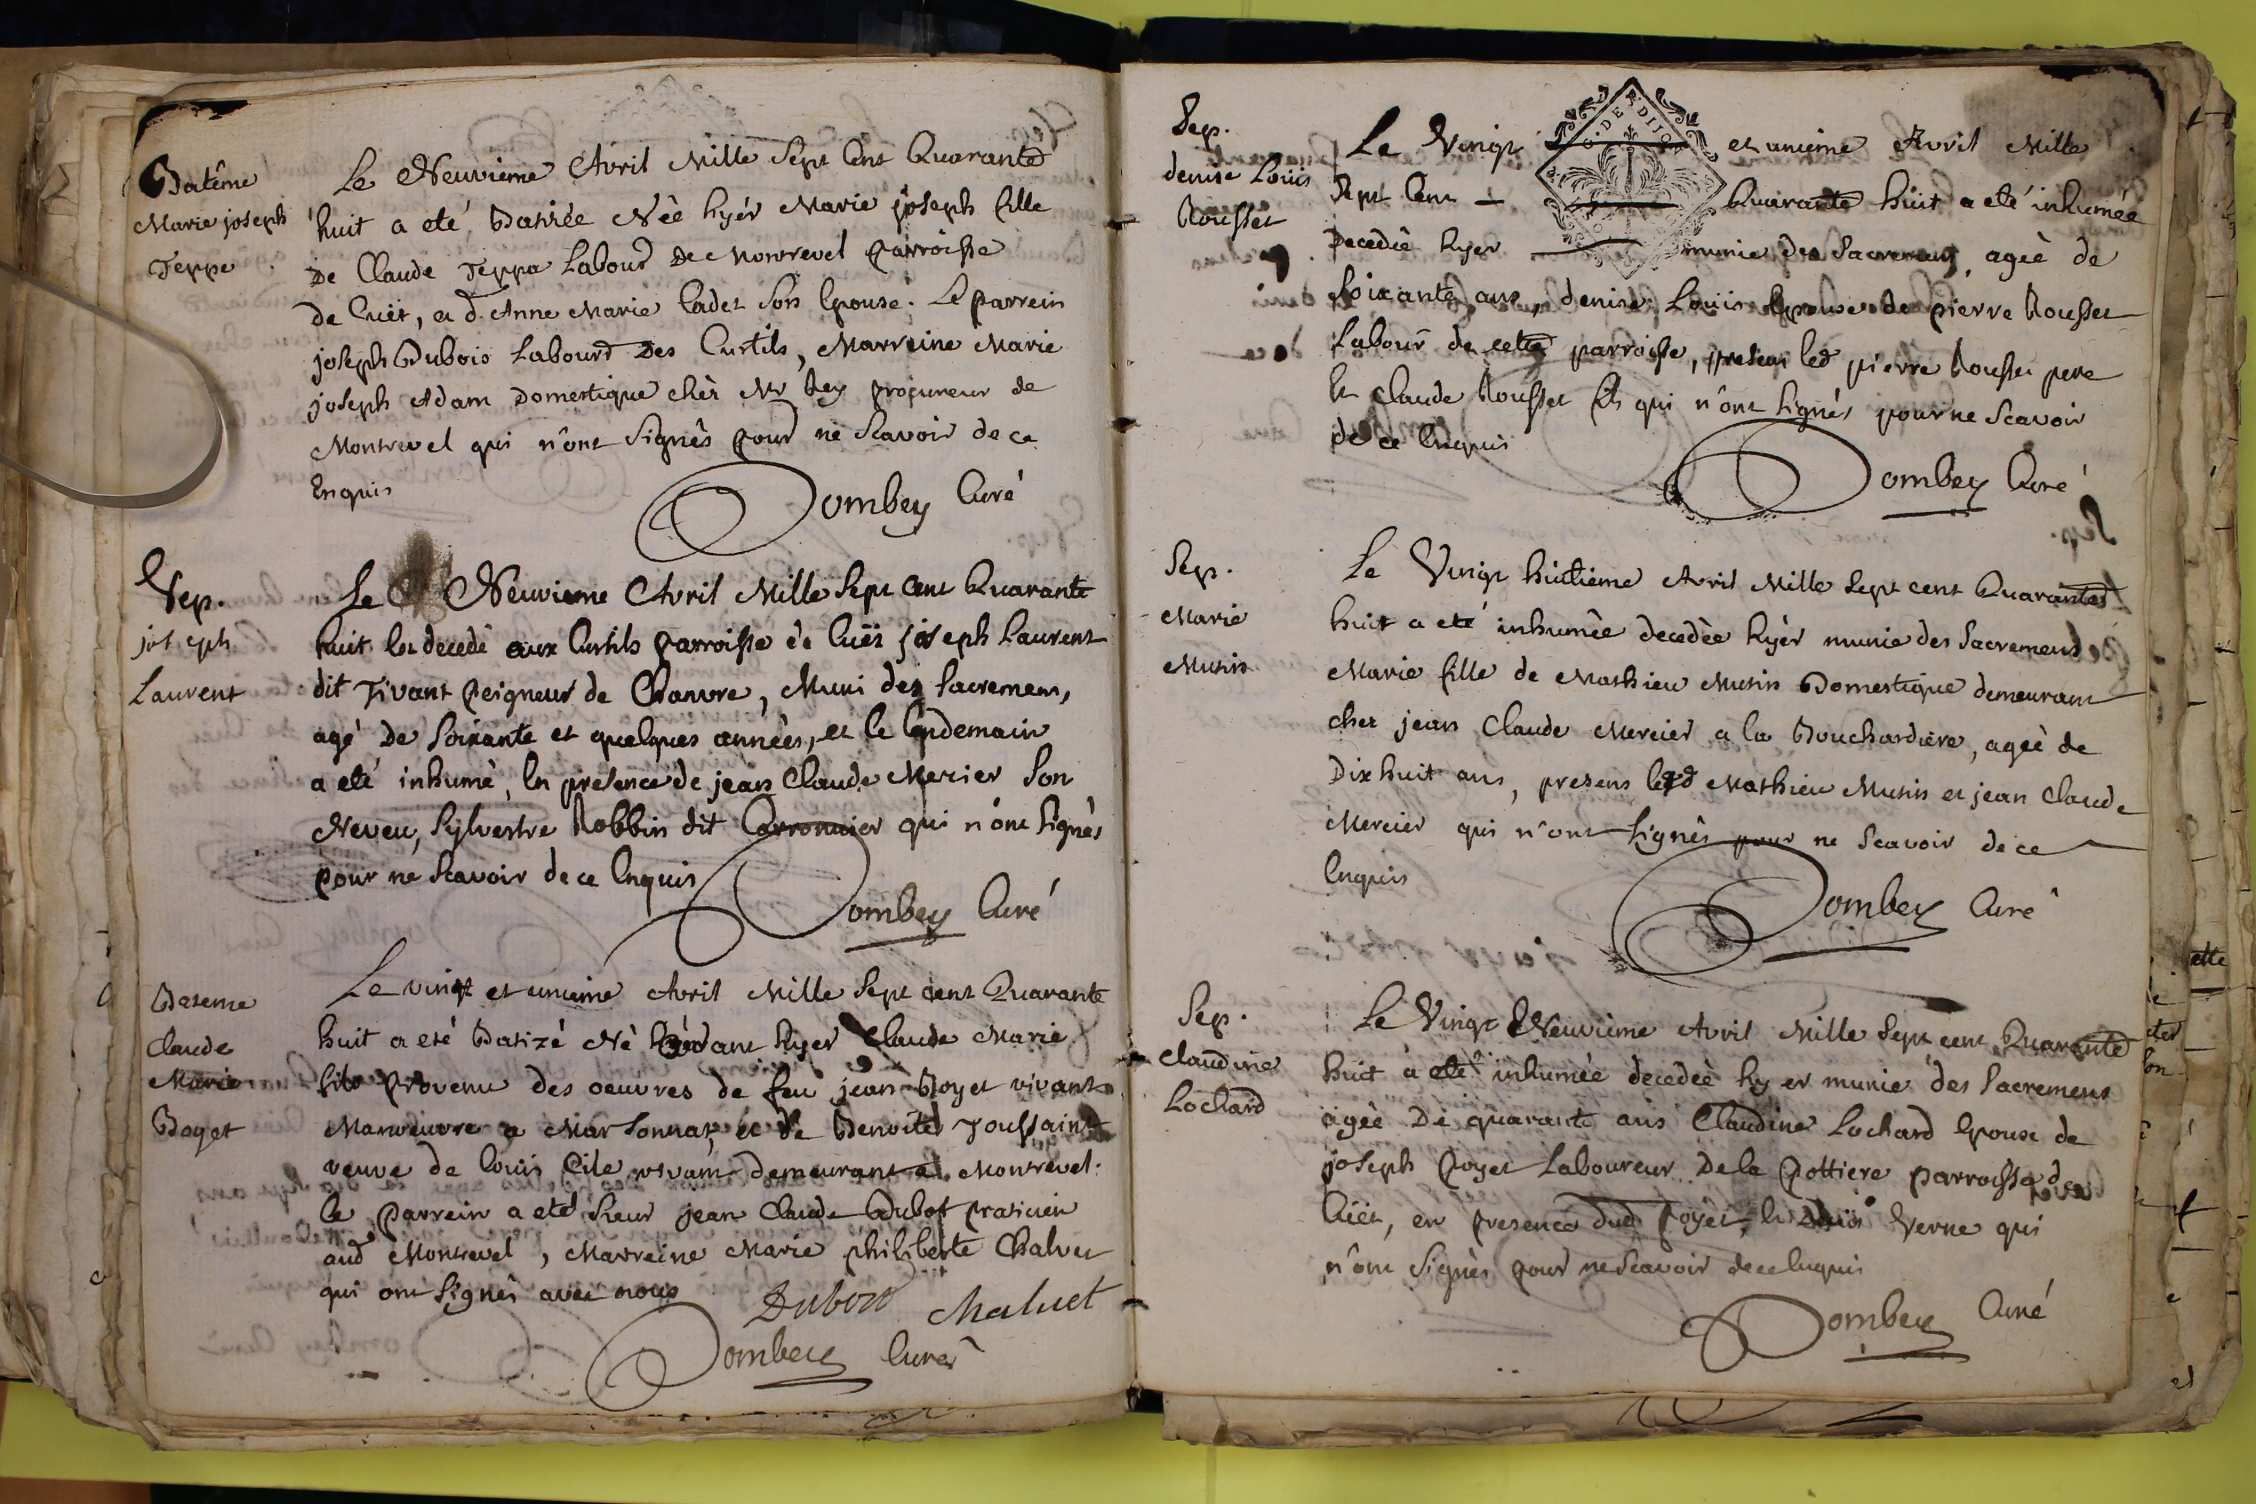 Batême
Marie joseph
Teppe
Le Neuvieme Avril Mille Sept Cent Quarante
huit a eté Batisée Née hyér Marie joseph fille
De Claude Teppe Labour De Montrevel parroisse
de Cuët, et d. Anne Marie Cadet Son Epouse. Le parrein
joseph Dubois Labour Des Curtils, Marreine Marie
joseph Adam Domestique chés Mr Rey procureur de
Montrevel qui n'ônt Signés pour ne Scavoir de ce
Enquis
Dombey Curé
Sep.
joseph
Laurent
Le Neuvieme Avril Mille Sept Cent Quarante
huit Est decedé aux Curtils parroisse de Cuët joseph Laurent
dit Tivant peigneur de Chanvre, Muni des Sacremens,
agé De Soixante et quelques années, et le Lendemain
a eté inhumé, En presence de jean Claude Mercier Son
Neveu, Sylvestre Robbin dit Carronnier qui n'ônt Signés
pour ne Scavoir de ce Enquis
Dombey Curé
Bateme
Claude
Marie
Boyet
Le vingt et unieme Avril Mille Sept cent Quarante
huit a eté Batizé Né avant hyer Claude Marie
fils provenu des oeuvres de feu jean Boyet vivant
Manoeuvre a Marsonnaz, et de Benoite Toussaint
veuve de Louis Cile vivant demeurant a Montrevel.
le parrein a eté Sieur jean Claude Dubost praticien
aud Montrevel, Marreine Marie philiberte Chalvet
qui ont Signés avec nous
Dubost Chaluet
Dombey Curé
Sep.
denise Loüis
Rousset
Le Vingt et unieme Avril Mille
Sept Cent Quarante huit a eté inhumée
Decedée hyer munie des Sacremens, ageé de
Soixante ans, denise Loüis Epouse de pierre Rousset
Labour de cette parroisse, presens led pierre Rousset pere
Et Claude Rousset fils qui n'ônt Signés pour ne Scavoir
de ce Enquis
Dombey Curé
G. DE DIJON
Sep.
Marie
Mutin
Le Vingt huitieme Avril Mille Sept cent Quarante
huit a eté inhumée decedée hyèr munie des Sacremens
Marie fille de Mathieu Mutin Domestique demeurant
chez jean Claude Mercier a la Bouchardiere, ageé de
Dix huit ans, presens led Mathieu Mutin et jean Claude
Mercier qui n'ont Signés pour ne Scavoir de ce
Enquis
Dombey Curé
Sep.
Claudine
Lochard
Le Vingt Neuvieme Avril Mille Sept cent Quarante
huit à eté inhumée decedeé hyer munie des Sacremens
ageé De quarante ans Claudine Lochard Epouse de
joseph poyet Laboureur De la pottiere parroisse de
Cuët, en presence dud poyet, Verne qui
n'ônt Signés pour ne Scavoir de ce Enquis
Dombey Curé